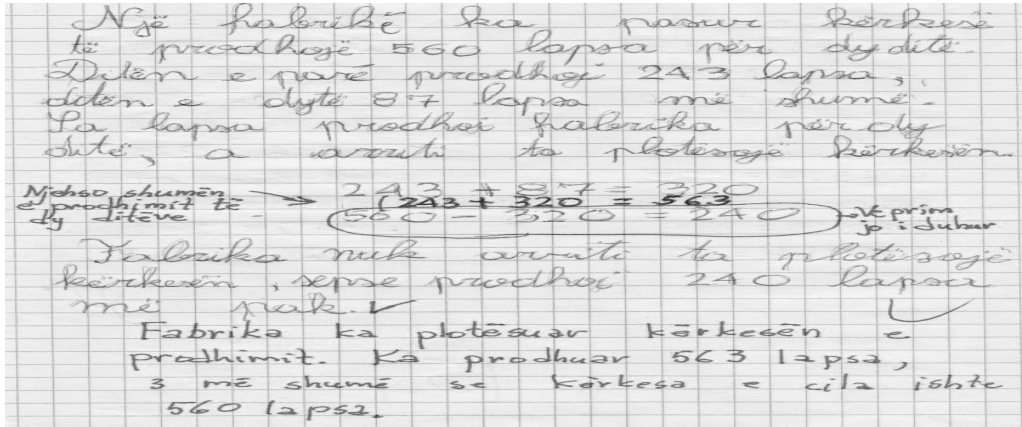 Një fabrikë ka pasur kërkesë
të prodhojë 560 lapsa për dy ditë.
Ditën e parë prodhoi 243 lapsa,
ditën e dytë 87 lapsa më shumë.
Sa lapsa prodhoi fabrika për dy
ditë, a arriti ta plotësojë kërkesën.
Njehso shumën
e prodhimit të
dy ditëve
243 + 87 = 320
(243 + 320 = 563
560 - 320 = 240
Veprim
jo i duhur
Fabrika nuk arriti ta plotësojë
kërkesën, sepse prodhoi 240 lapsa
më pak. ✓
Fabrika ka plotësuar kërkesën e
prodhimit. Ka prodhuar 563 lapsa,
3 më shumë se kërkesa e cila ishte
560 lapsa.